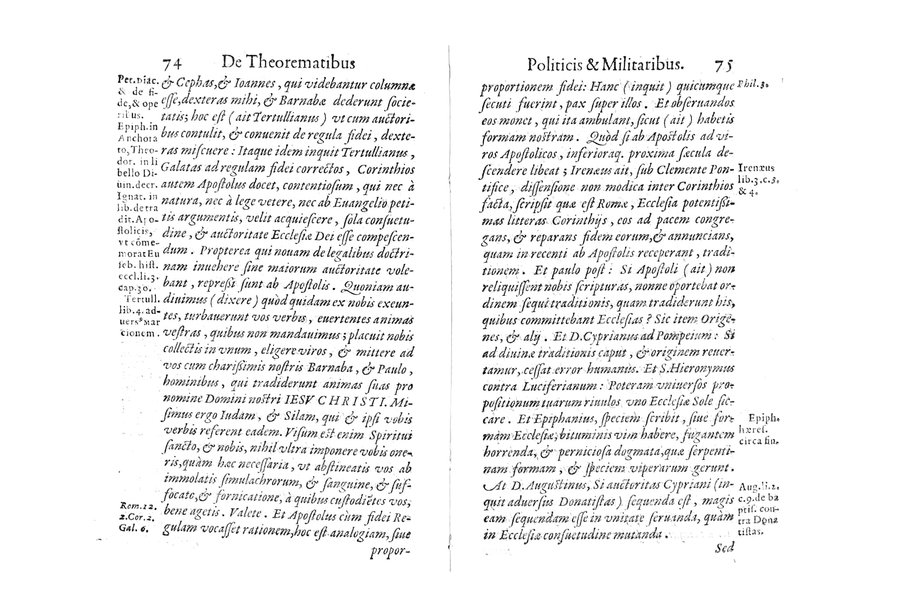 74 De Theorematibus
Pet. Diac.
& de fi-
de, & ope
ribus.
Epiph. in
Anchora
to, Theo-
dor. in li
bello Di-
uin. decr.
Ignat. in
lib. de tra
dit. Apo-
stolicis,
vt cōme-
morat Eu
seb. hist.
eccl. li. 3.
cap. 30.
Tertull.
lib. 4. ad-
uers° Mar
cionem.
Rom. 12.
2. Cor. 2.
Gal. 6.
& Cephas, & Ioannes, qui videbantur columnæ
esse, dexteras mihi, & Barnabæ dederunt socie-
tatis; hoc est (ait Tertullianus) vt cum auctori-
bus contulit, & conuenit de regula fidei, dexte-
ras miscuere: Itaque idem inquit Tertullianus,
Galatas ad regulam fidei correctos, Corinthios
autem Apostolus docet, contentiosum, qui nec à
natura, nec à lege vetere, nec ab Euangelio peti-
tis argumentis, velit acquiescere, sola consuetu-
dine, & auctoritate Ecclesiæ Dei esse compescen-
dum. Propterea qui nouam de legalibus doctri-
nam inuehere sine maiorum auctoritate vole-
bant, repressi sunt ab Apostolis. Quoniam au-
diuimus (dixere) quòd quidam ex nobis exeun-
tes, turbauerunt vos verbis, euertentes animas
vestras, quibus non mandauimus; placuit nobis
collectis in vnum, eligere viros, & mittere ad
vos cum charißimis nostris Barnaba, & Paulo,
hominibus, qui tradiderunt animas suas pro
nomine Domini nostri IESV CHRISTI. Mi-
simus ergo Iudam, & Silam, qui & ipsi vobis
verbis referent eadem. Visum est enim Spiritui
sancto, & nobis, nihil vltra imponere vobis one-
ris, quàm hæc necessaria, vt abstineatis vos ab
immolatis simulachrorum, & sanguine, & suf-
focato, & fornicatione, à quibus custodiētes vos,
bene agetis. Valete. Et Apostolus cùm fidei Re-
gulam vocasset rationem, hoc est analogiam, siue
propor-
Politicis & Militaribus. 75
proportionem fidei: Hanc (inquit) quicumque
secuti fuerint, pax super illos. Et obseruandos
eos monet, qui ita ambulant, sicut (ait) habetis
formam nostram. Quòd si ab Apostolis ad vi-
ros Apostolicos, inferioraq. proxima sæcula de-
scendere libeat; Irenæus ait, sub Clemente Pon-
tifice, dissensione non modica inter Corinthios
facta, scripsit quæ est Romæ, Ecclesia potentißi-
mas litteras Corinthijs, eos ad pacem congre-
gans, & reparans fidem eorum, & annuncians,
quam in recenti ab Apostolis receperant, tradi-
tionem. Et paulo pòst: Si Apostoli (ait) non
reliquissent nobis scripturas, nonne oportebat or-
dinem sequi traditionis, quam tradiderunt his,
quibus committebant Ecclesias? Sic item Orige-
nes, & alij. Et D. Cyprianus ad Pompeium: Si
ad diuinæ traditionis caput, & originem reuer-
tamur, cessat error humanis. Et S. Hieronymus
contra Luciferianum: Poteram vniuersos pro-
positionum tuarum riulos vno Ecclesiæ Sole sic-
care. Et Epiphanius, speciem scribit, siue for-
mam Ecclesiæ, bituminis vim habere, fugantem
horrenda, & perniciosa dogmata, quæ serpenti-
nam formam, & speciem viperarum gerunt.
At D. Augustinus, Si auctoritas Cypriani (in-
quit aduersus Donatistas) sequenda est, magis
eam sequendam esse in vnitate seruanda, quàm
in Ecclesiæ consuetudine mutanda.
Sed
Phil. 3.
Irenæus
lib. 3. c. 3.
& 4.
Epiph.
hæres.
circa fin.
Aug. li. 2.
c. 9. de ba
ptis. con-
tra Dona
tistas.